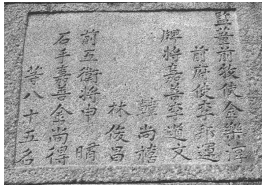 監董前牧使金樂淳
前府使李邦運
牌將嘉善李道文
韓尚禧
林俊昌
前五衛將申 晴
石手嘉善金尚得
等八十五名